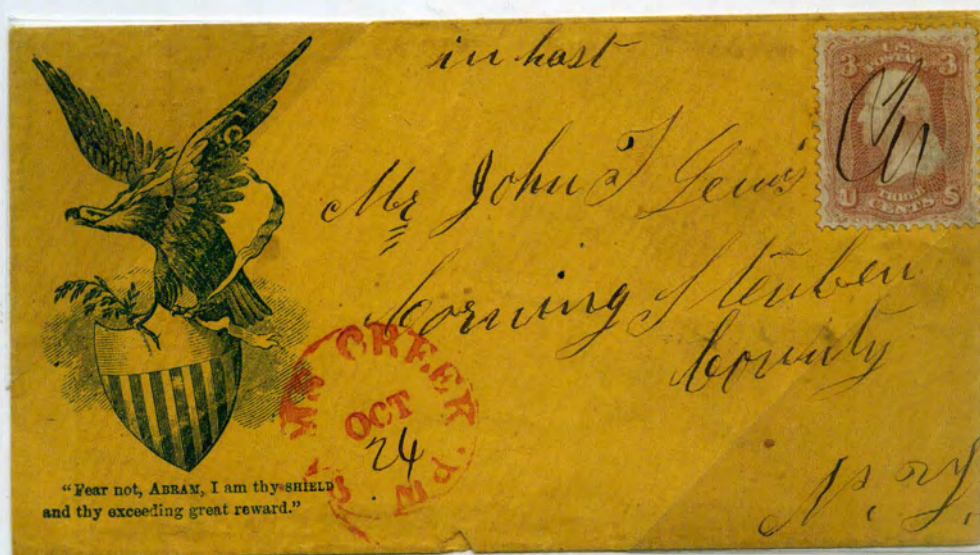 in hast
U.S. POSTAGE
3 3
U S
THREE CENTS
Mr John T Lewis
Corning Steuben
County
N. Y.
CREEK PN
OCT
24
"Fear not, ABRAM, I am thy SHIELD
and thy exceeding great reward."